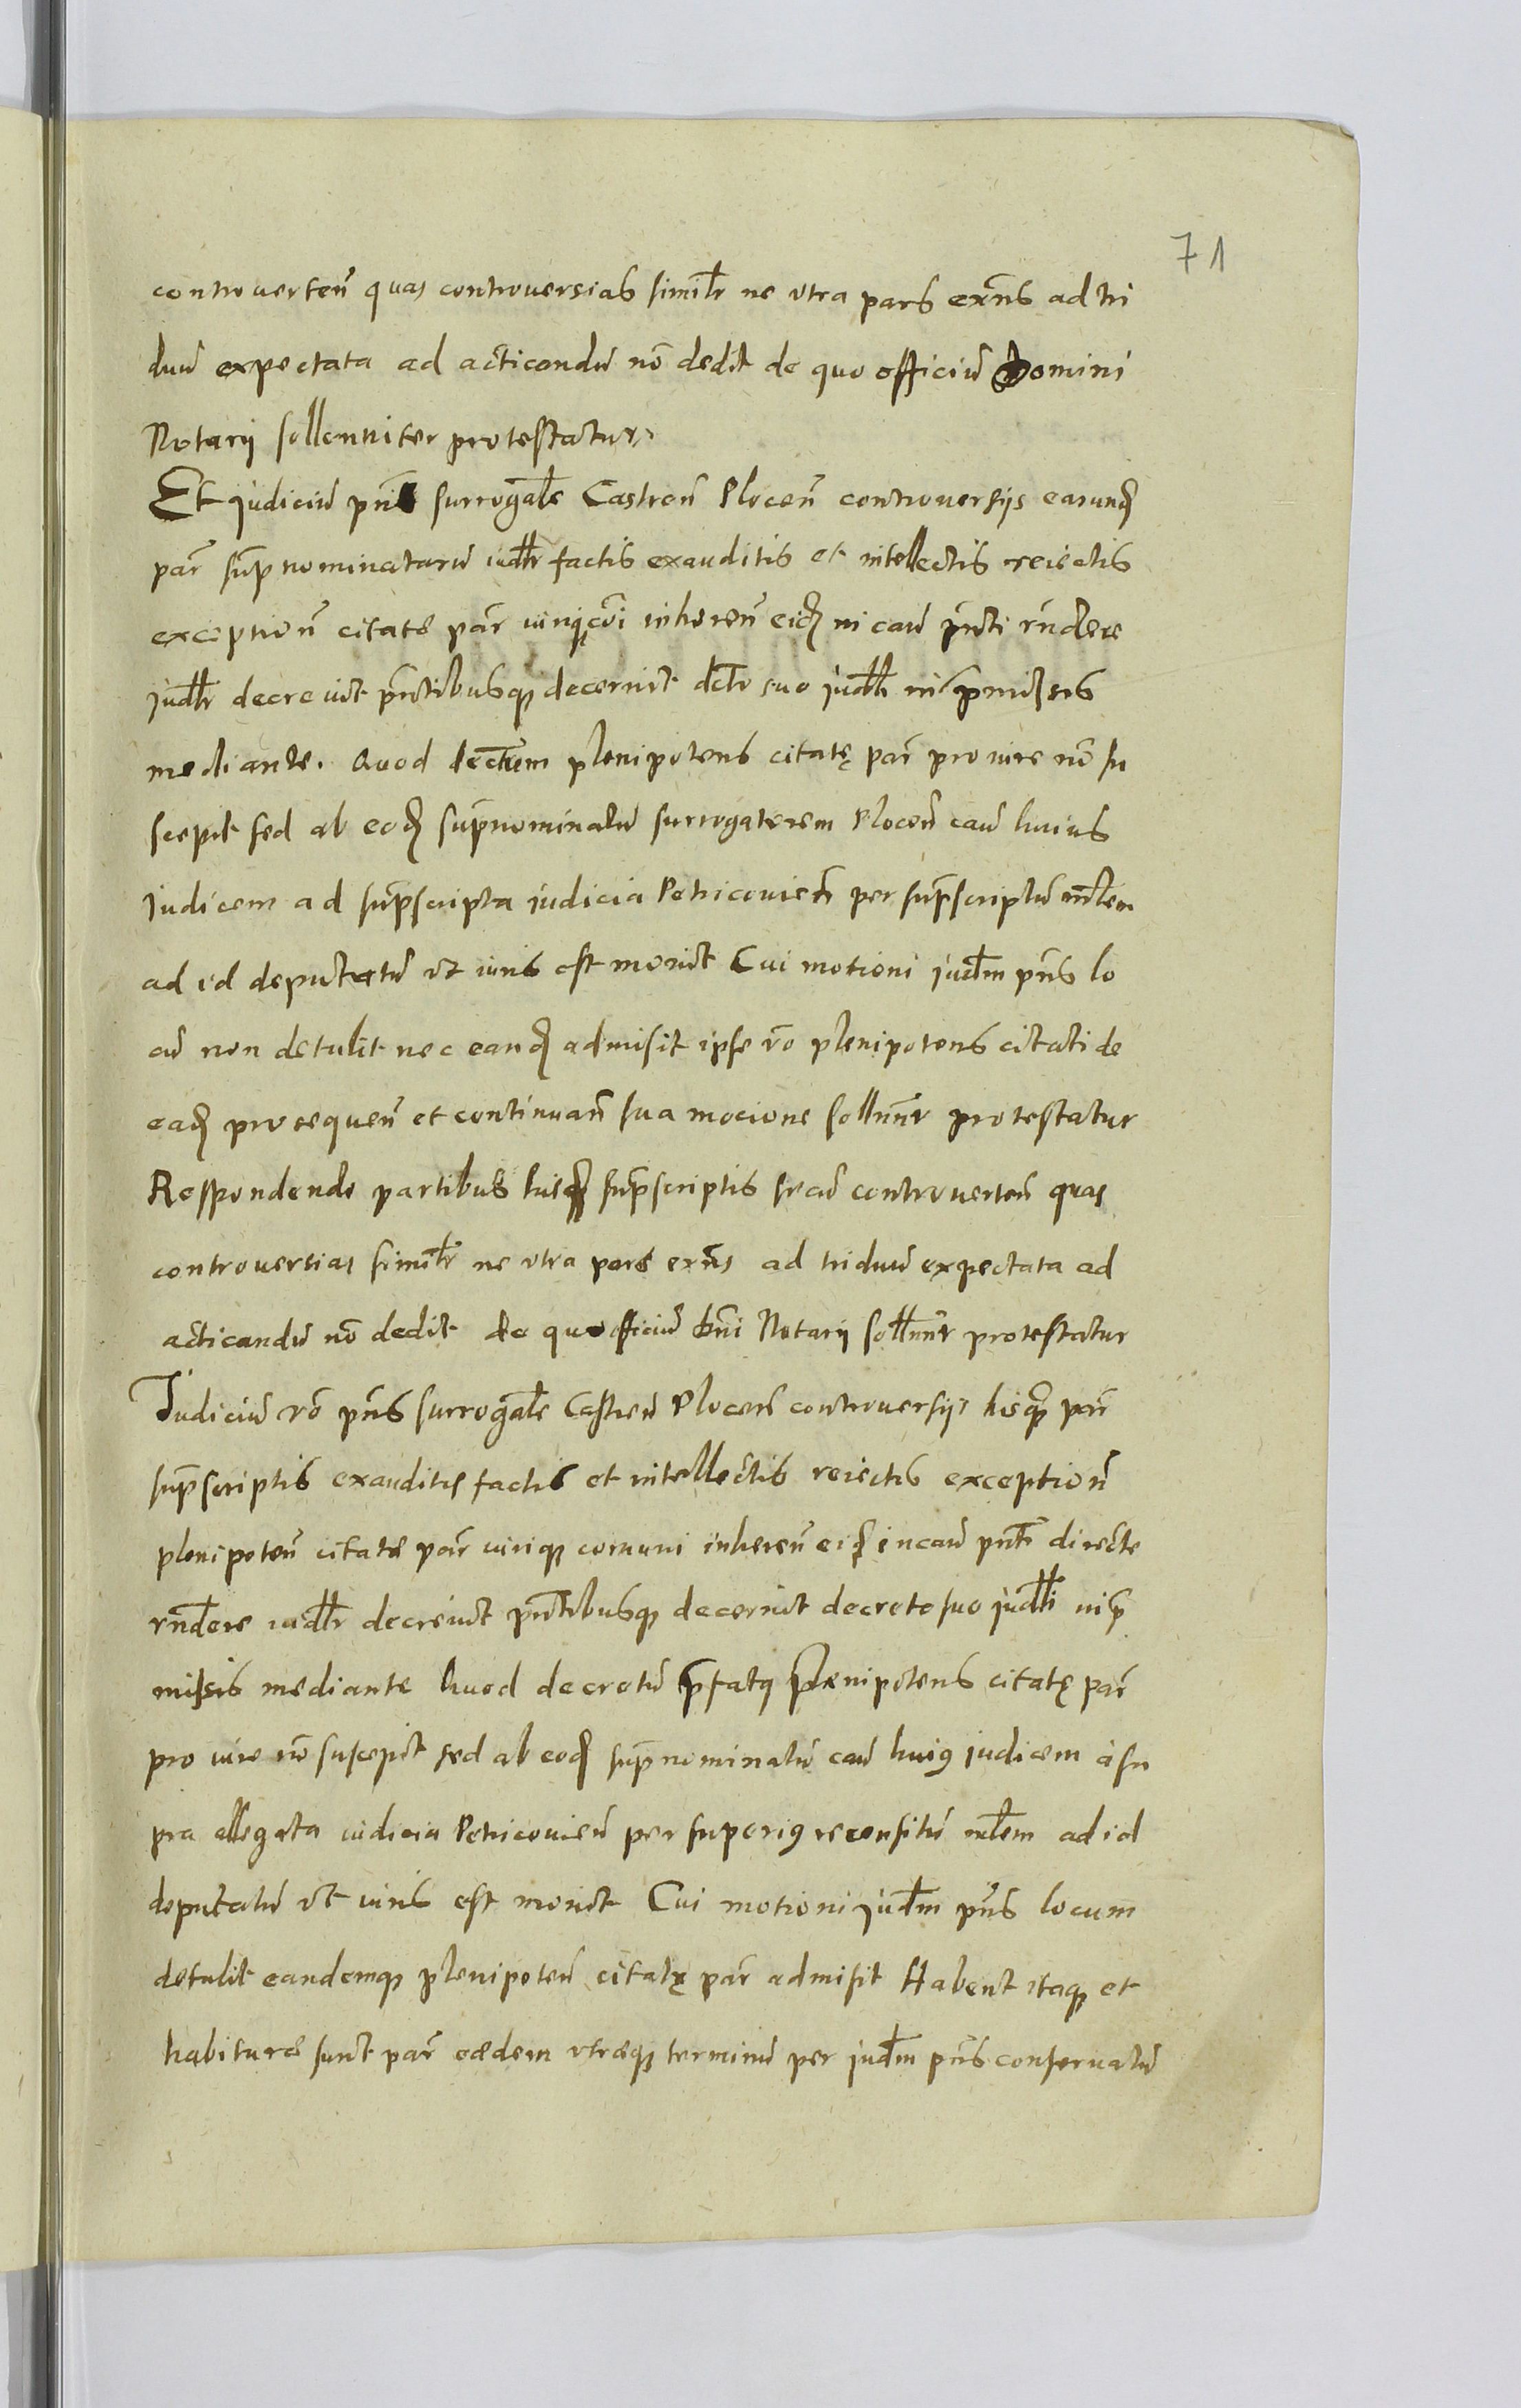 71
controverten̄ quas controversias simil̄r ne utra pars exn̄s ad tri
duū expectata ad acticandū nō dedit de quo officiū Domini
Notarii sollenniter protestatur
Et judiciū pn̄s surrogāle Castren̄ Plocen̄ controversiis earund
par̄ sup̄nominatarū iudl̄r factis exauditis et intellectis reiectis
exception̄ citatę par̄ iuriq cōi inheren̄ eid in caū pn̄ti rn̄dere
judl̄r decrevit pn̄tibusq decernit dcto suo judl̄i in p̄missis
mediante. Quod dectum plenipotens citatę par̄ pro iure nō su
scepit sed ab eod sup̄nominatū surrogatorem Plocen̄ caū huius
Judicem ad sup̄scripta judicia Petricovien̄ per sup̄scriptū mlem
ad id deputatū ut iuris est movit Cui motioni judm pn̄s lo
cū non detulit nec eand admisit ipse vō plenipotens citati de
ead prosequen̄ et continuan̄ sua mocione solln̄nr protestatur
Respondendo partibus hisq sup̄scriptis secū controverten̄ quas
controversias simil̄r ne utra pars exn̄s ad triduum expectata ad
acticandū nō dedit de quo officiū dn̄i Notarii solln̄nr protestatur
Judiciū vō pn̄s surrogāle Castren̄ Plocen̄ controversiis hisq par̄
sup̄scriptis exauditis factis et intellectis reiectis exception̄
plenipoten̄ citatę par̄ iurique comuni inheren̄ eid in caū pn̄ti directe
rn̄dere iudl̄r decrevit pn̄tibusq decernit decreto suo judl̄i in p̄
missis mediante Quod decretū p̄fatus plenipotens citatę par̄
pro iure nō suscepit sed ab eod sup̄nominatū caū huius judicem a su
pra allegata iudicia Petricovien̄ per superius recensitū mlem ad id
deputatū ut iuris est movit Cui motioni judm pn̄s locum
detulit eandemq plenipoten̄ citatę par̄ admisit Habent itaq et
habiturę sunt par̄ eędem utręq terminū per judm pn̄s conservatū